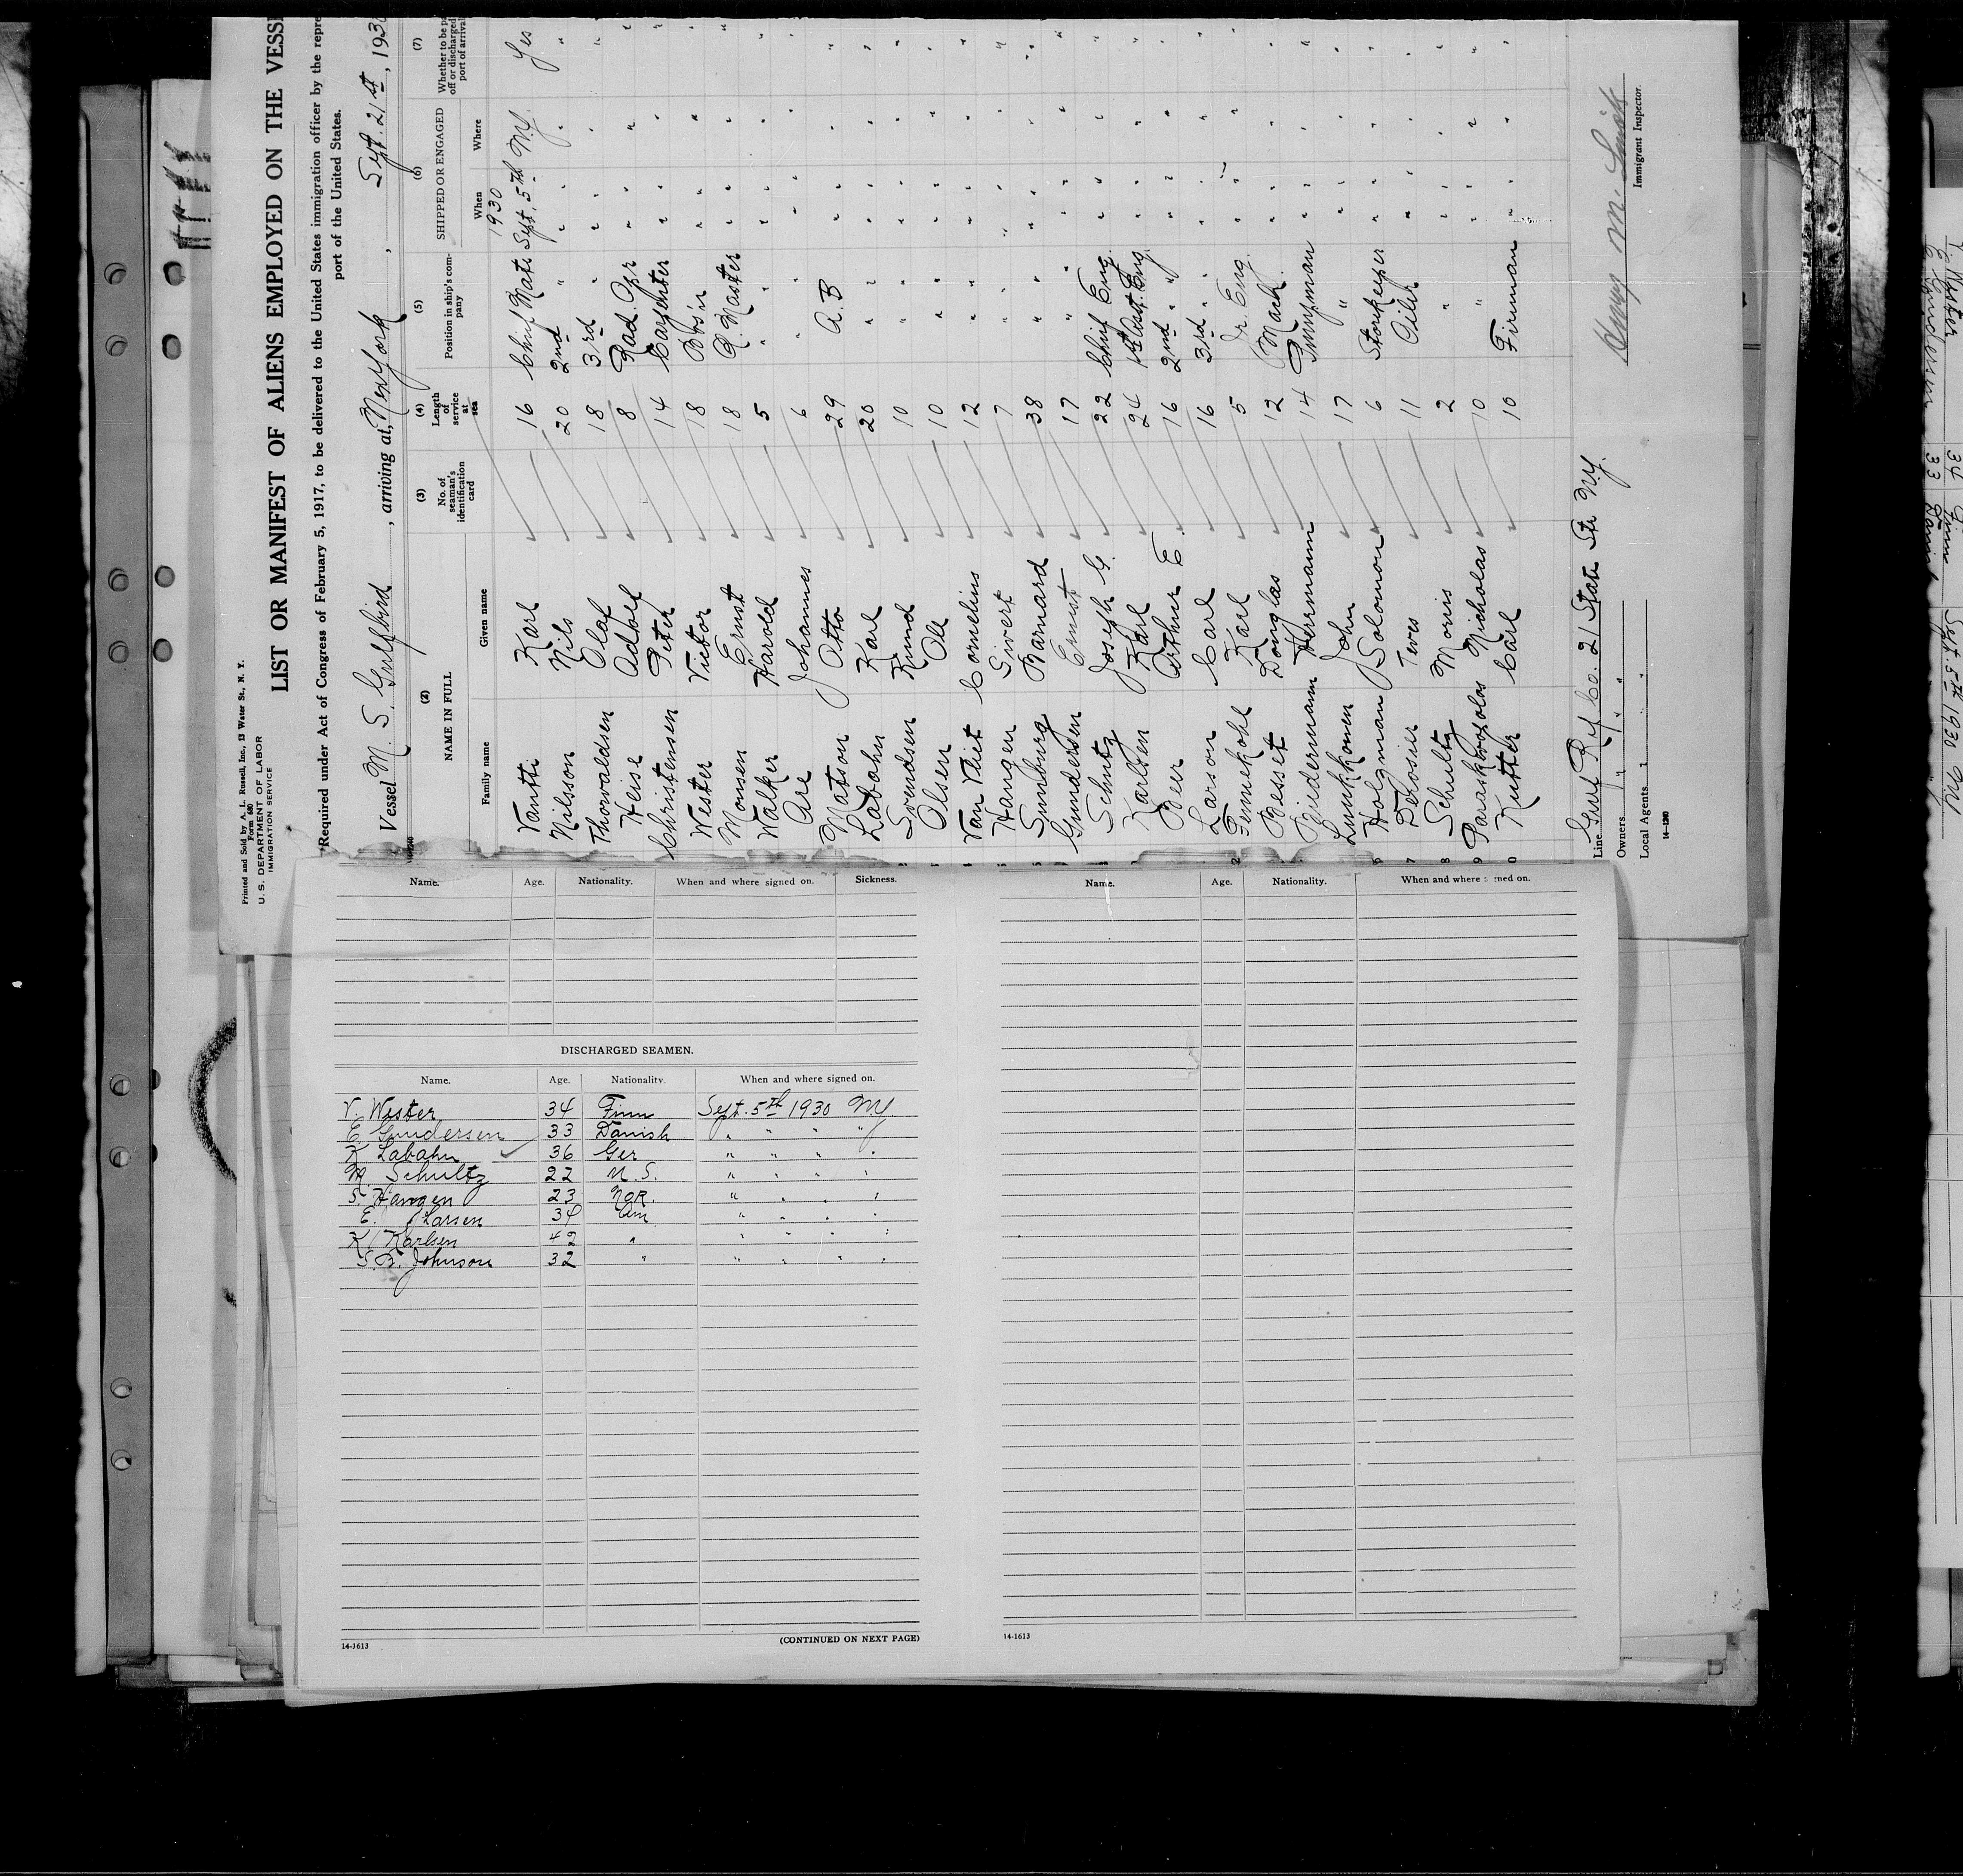 Printed and Sold by A. L. Russell, Inc., 13 Water St., N. Y.
Form 680
U. S. DEPARTMENT OF LABOR
IMMIGRATION SERVICE
LIST OR MANIFEST OF ALIENS EMPLOYED ON THE VESSE
Required under Act of Congress of February 5, 1917, to be delivered to the United States immigration officer by the repre
port of the United States.
Vessel M. S. Gulfbird, arriving at, New York, Sept. 21st, 193
(2) (3) (4) (5) (6) (7)
NAME IN FULL No. of seaman's identification card Length of service at sea Position in ship's company SHIPPED OR ENGAGED Whether to be pa off or discharged port of arrival
Family name Given name When Where
1930
Karl 16 Chief Mate Sept. 5th N.Y. Yes
Nilsson Nils 20 2nd " " " " "
Thorvaldsen Olaf 18 3rd " " " " "
Heise Adolf 8 Rad. Opr " " " "
Christensen Peter 14 Carpenter " " " "
Wester Victor 18 Bos'n " " " "
Monsen Ernst 18 Q. Master " " " "
Walker Harold 5 " " " " "
Are Johannes 6 " " " " "
Matson Otto 29 A. B " " " "
Labahn Karl 20 " " " " "
Svendsen Knud 10 " " " " "
Olsen Ole 10 " " " " "
Van Vliet Cornelius 12 " " " " "
Haugen Sivert 7 " " " " "
Barnard 38 " " " " "
Gundersen Ernst 17 " " " " "
Schmitz Joseph G. 22 Chief Eng. " " " "
Karlsen Karl 24 1st Asst. Eng. " " " "
Beer Arthur E. 16 2nd " " " " " "
Larson Carl 16 3rd " " " " "
Karl 5 Jr. Eng. " " " "
Besset Douglas 12 Mach. " " " "
Biedermann Herrmann 14 Pumpman " " " "
John 17 " " " " "
Holzman Solomon 6 Storekeeper " " " "
11 Oiler " " " "
8 Schultz Morris 2 " " " " "
9 Nicholas 10 " " " " "
0 Kutter Carl 10 Fireman " " " "
Line Gulf Ref Co. 21 State Str N.Y.
Owners " " "
Local Agents " " "
Immigrant Inspector.
14-1240
Name. Age. Nationality. When and where signed on. Sickness.
DISCHARGED SEAMEN.
Name. Age. Nationality. When and where signed on.
V. Wester 34 Finn Sept. 5th 1930 N.Y.
E. Gundersen 33 Danish " " " "
K Labahn 36 Ger " " " "
M. Schultz 22 U. S. " " " "
S. Haugen 23 NOR. " " " "
E. Larsen 34 Am " " " "
K. Karlsen 42 " " " " "
S. B. Johnson 32 " " " " "
14-1613
(CONTINUED ON NEXT PAGE)
Name. Age. Nationality. When and where signed on.
14-1613